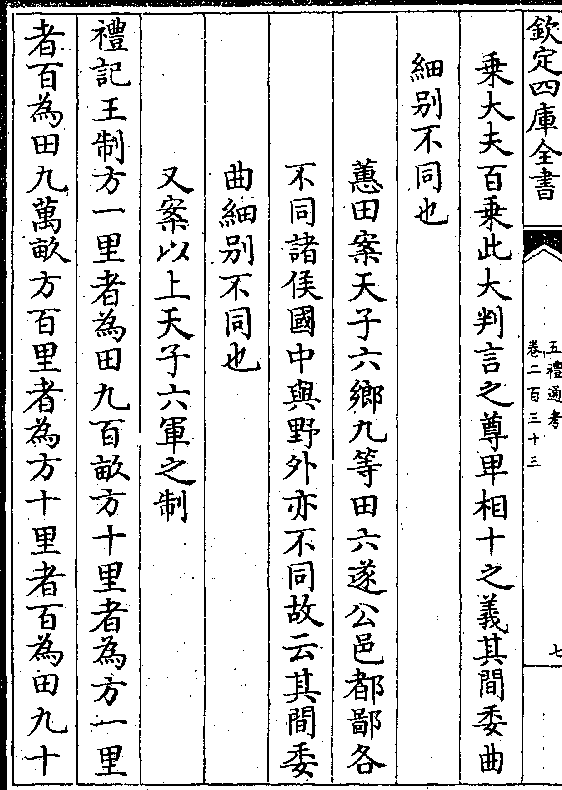 欽定四庫全書
五禮通考
卷二百三十三
七
乗大夫百乗此大判言之尊卑相十之義其間委曲
細别不同也
蕙田案天子六鄉九等田六遂公邑都鄙各
不同諸侯國中與野外亦不同故云其間委
曲細别不同也
又案以上天子六軍之制
禮記王制方一里者為田九百畝方十里者為方一里
者百為田九萬畝方百里者為方十里者百為田九十